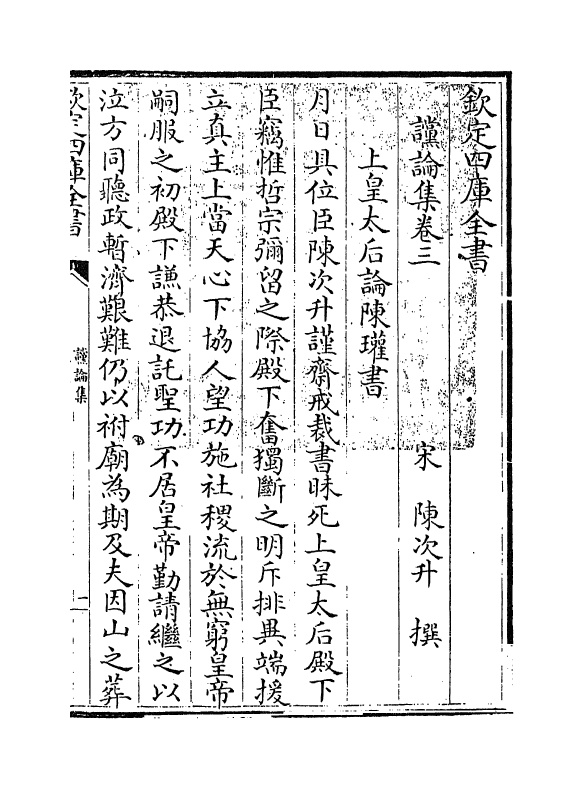 欽定四庫全書
讜論集卷三
宋　陳次升　撰
上皇太后論陳瓘書
月日具位臣陳次升謹齋戒裁書昧死上皇太后殿下
臣竊惟哲宗彌留之際殿下奮獨斷之明斥排異端援
立真主上當天心下協人望功施社稷流於無窮皇帝
嗣服之初殿下謙恭退託聖功不居皇帝勤請繼之以
泣方同聽政暫濟艱難仍以祔廟為期及夫因山之葬
欽定四庫全書
讜論集
一